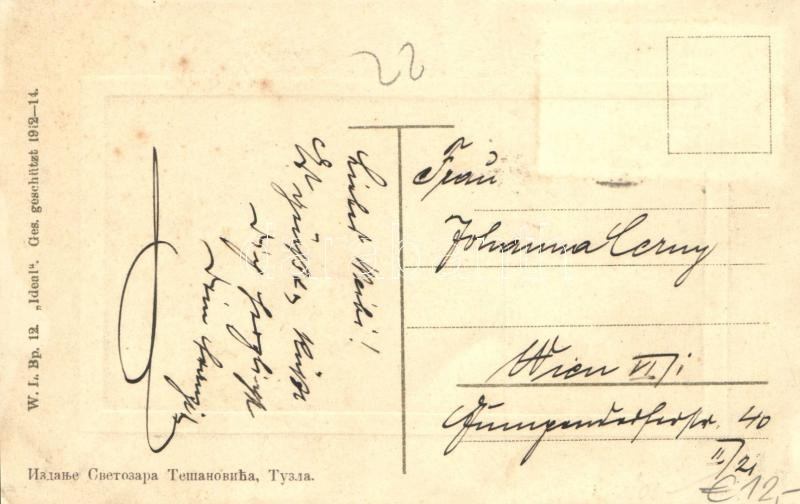 22
W. L. Bp. 12. „Ideal“. Ges. geschützt 1912–14.
Liebes Weibi!
Es grüßt, küßt
Dich herzlichst
Dein
Frau
Johanna Cerny
Wien VI/1
Gumpendorferstr. 40
II/21
Издање Светозара Тешановића, Тузла.
€ 12,-